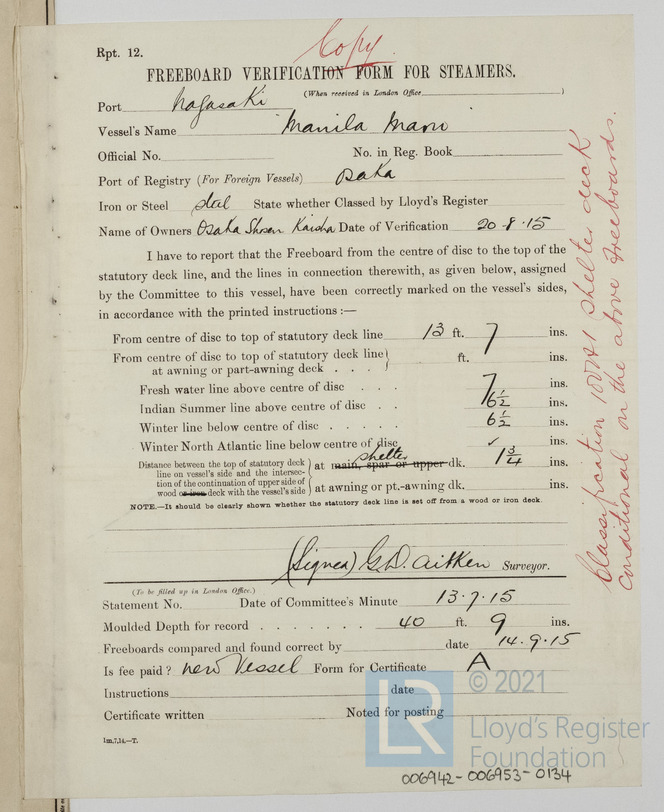 Rpt. 12.
Copy
FREEBOARD VERIFICATION FORM FOR STEAMERS.
(When received in London Office )
Port Nagasaki
Vessel's Name Manila Maru
Official No. No. in Reg. Book
Port of Registry (For Foreign Vessels) Osaka
Iron or Steel steel State whether Classed by Lloyd's Register
Name of Owners Osaka Shosen Kaisha Date of Verification 20·8·15
I have to report that the Freeboard from the centre of disc to the top of the
statutory deck line, and the lines in connection therewith, as given below, assigned
by the Committee to this vessel, have been correctly marked on the vessel's sides,
in accordance with the printed instructions :—
From centre of disc to top of statutory deck line 13 ft. 7 ins.
From centre of disc to top of statutory deck line
at awning or part-awning deck . . . ft. ins.
Fresh water line above centre of disc . . . 7 ins.
Indian Summer line above centre of disc . . 6½ ins.
Winter line below centre of disc . . . . . 6½ ins.
Winter North Atlantic line below centre of disc ✓ ins.
Distance between the top of statutory deck
line on vessel's side and the intersec-
tion of the continuation of upper side of
wood or iron deck with the vessel's side
shelter
at main, spar or upper dk. 1¾ ins.
at awning or pt.-awning dk. ins.
NOTE.—It should be clearly shown whether the statutory deck line is set off from a wood or iron deck.
(Signed) G.D. Aitken Surveyor.
(To be filled up in London Office.)
Statement No. Date of Committee's Minute 13·7·15
Moulded Depth for record . . . . . . . 40 ft. 9 ins.
Freeboards computed and found correct by date 14·9·15
Is fee paid ? new Vessel Form for Certificate A
Instructions date
Certificate written Noted for posting
1m,7,14.—T.
Classification 100A1 shelter deck
conditional on the above freeboards.
LR
© 2021
Lloyd's Register
Foundation
006942-006953-0134